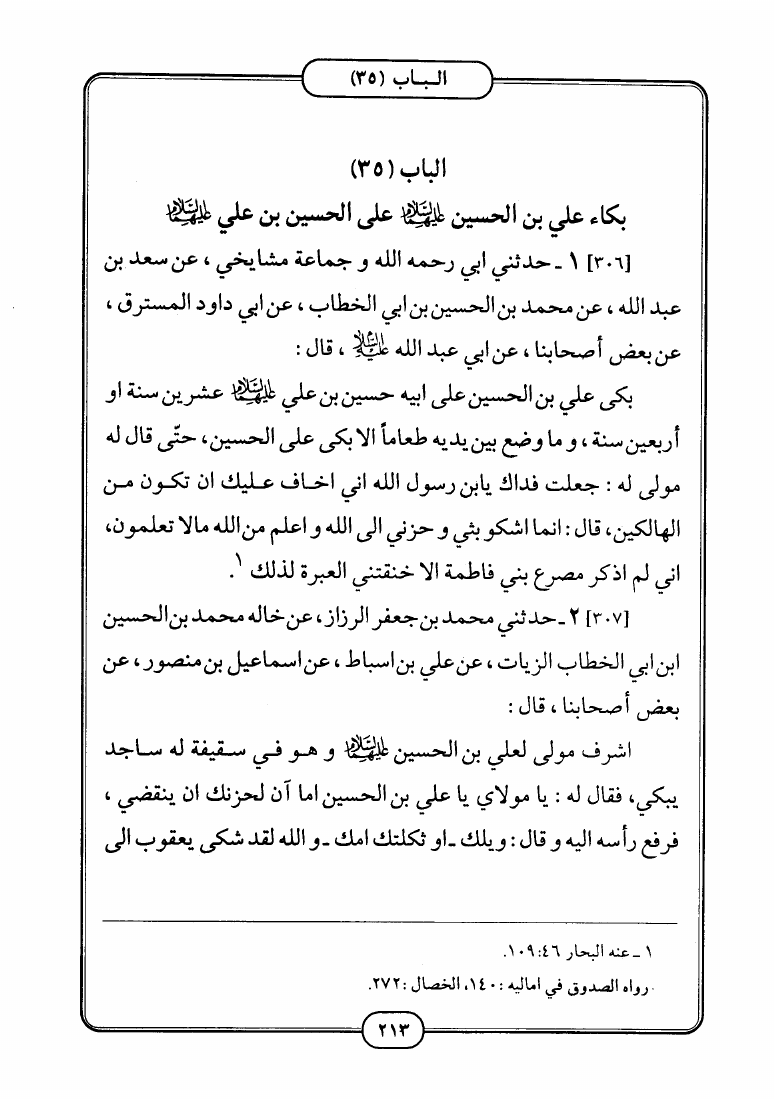 البـاب (٣٥)
الباب (٣٥)
بكاء علي بن الحسين عليهما السلام على الحسين بن علي عليهما السلام
[٣٠٦] ١ ـ حدثني ابي رحمه الله و جماعة مشايخي ، عن سعد بن
عبد الله ، عن محمد بن الحسين بن ابي الخطاب ، عن ابي داود المسترق ،
عن بعض أصحابنا ، عن ابي عبد الله عليه السلام ، قال :
بكى علي بن الحسين على ابيه حسين بن علي عليهما السلام عشرين سنة او
أربعين سنة ، و ما وضع بين يديه طعاماً الا بكى على الحسين، حتّى قال له
مولى له : جعلت فداك يابن رسول الله اني اخـاف عـليك ان تكـون مـن
الهالكين، قال : انما اشكو بثي و حزني الى الله و اعلم من الله مالا تعلمون،
اني لم اذكر مصرع بني فاطمة الا خنقتني العبرة لذلك ١.
[٣٠٧] ٢ ـ حدثني محمد بن جعفر الرزاز، عن خاله محمد بن الحسين
ابن ابي الخطاب الزيات ، عن علي بن اسباط ، عن اسماعيل بن منصور ، عن
بعض أصحابنا ، قال :
اشرف مولى لعلي بن الحسين عليهما السلام و هـو فـي سـقيفة له سـاجد
يبكي، فقال له : يا مولاي يا علي بن الحسين اما آن لحزنك ان ينقضي ،
فرفع رأسه اليه و قال : ويلك ـ او ثكلتك امك ـ و الله لقد شكى يعقوب الى
١ ـ عنه البحار ٤٦:١٠٩.
رواه الصدوق في اماليه : ١٤٠، الخصال : ٢٧٢.
٢١٣